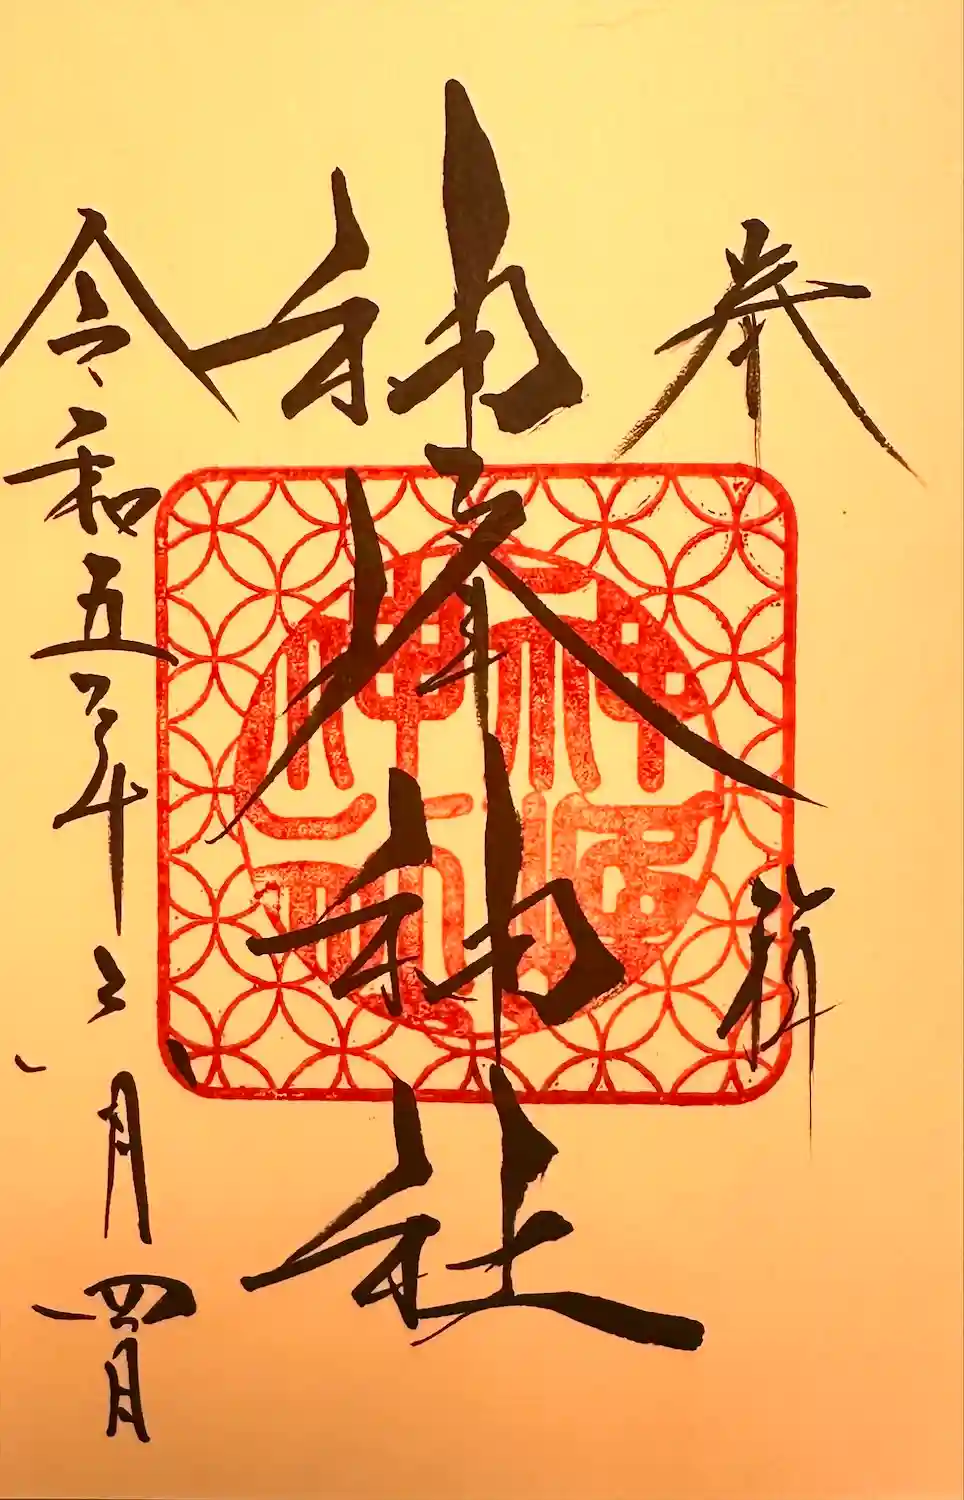 奉拝
神峰神社
令和五年三月四日
神峰神社